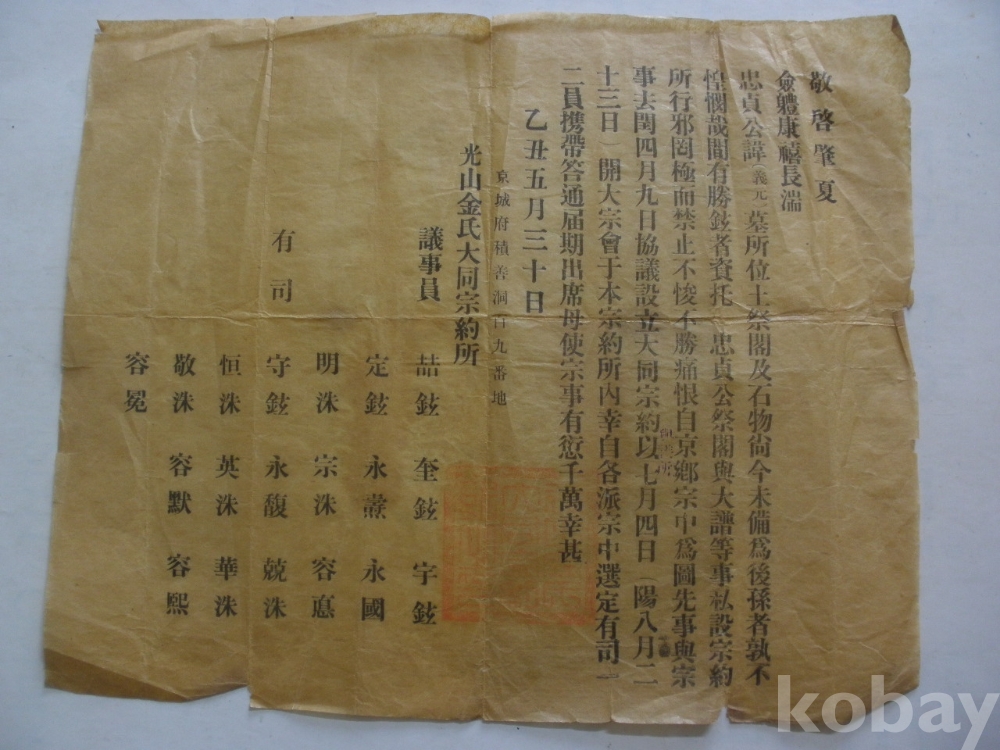 敬啓肇夏
僉軆康禧長湍
忠貞公諱(義元)墓所位土祭閣及石物尙今未備爲後孫者孰不
惶憫哉間有勝鉉者資托 忠貞公祭閣與大譜等事私設宗約
所行邪罔極而禁止不悛不勝痛恨自京鄕宗中爲圖先事與宗
事去閏四月九日協議設立大同宗約以七月四日(陽八月二
十三日)開大宗會于本宗約所內幸自各派宗中選定有司一
二員携帶答通届期出席毋使宗事有愆千萬幸甚
乙丑五月三十日
京城府積善洞百九番地
光山金氏大同宗約所
議事員 喆鉉 奎鉉 宇鉉
定鉉 永燾 永國
明洙 宗洙 容悳
有司 守鉉 永馥 兢洙
恒洙 英洙 華洙
敬洙 容默 容熙
容冕
kobay